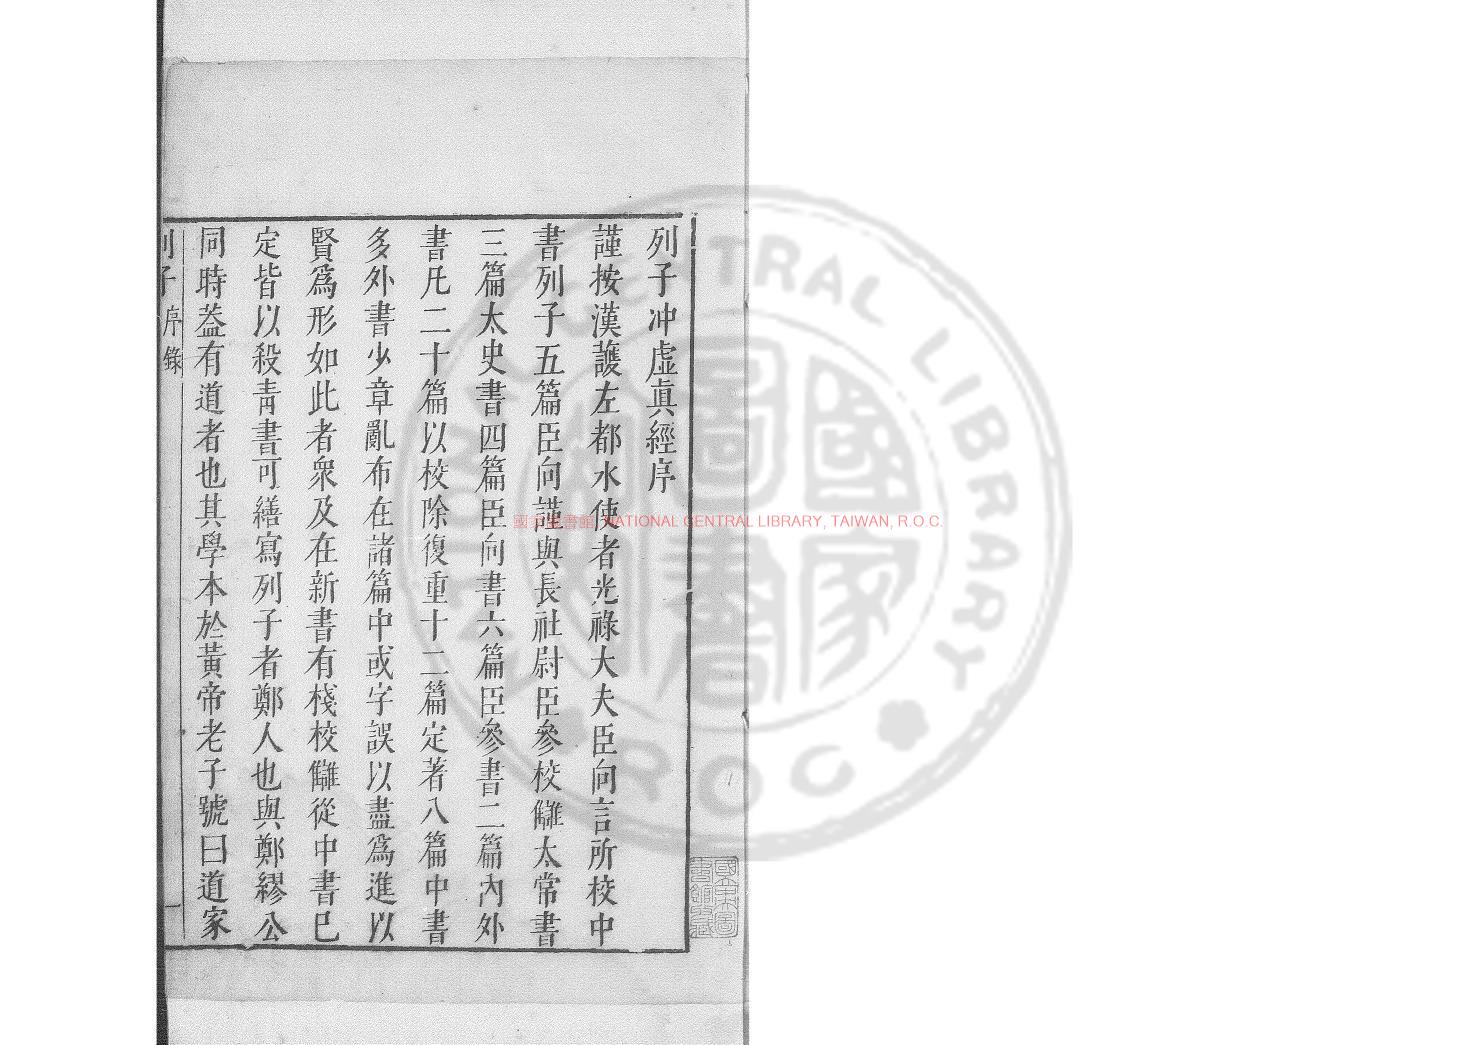 列子冲虛眞經序
謹按漢護左都水使者光祿大夫臣向言所校中
書列子五篇臣向謹與長社尉臣參校讎太常書
三篇太史書四篇臣向書六篇臣參書二篇內外
書凡二十篇以校除復重十二篇定著八篇中書
多外書少章亂布在諸篇中或字誤以盡爲進以
賢爲形如此者衆及在新書有棧校讎從中書已
定皆以殺青書可繕寫列子者鄭人也與鄭繆公
同時葢有道者也其學本於黃帝老子號曰道家
列子序錄
一
國家圖書館, NATIONAL CENTRAL LIBRARY, TAIWAN, R.O.C.
NATIONAL CENTRAL LIBRARY
ROC
國家圖書